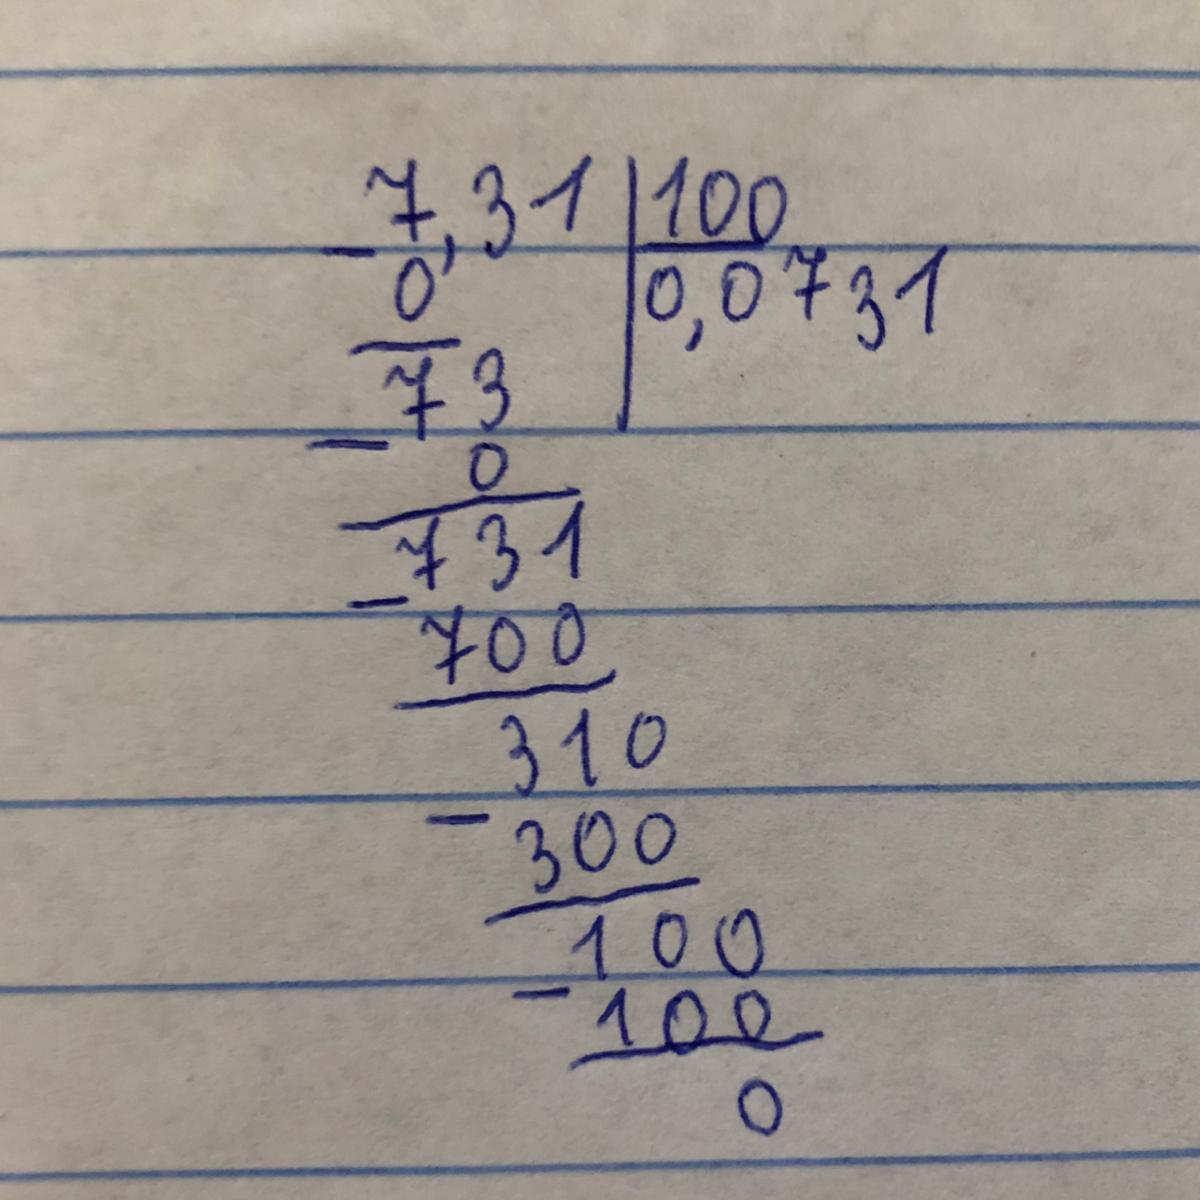 7,31 | 100
- 0 | 0,0731
73
- 0
731
- 700
310
- 300
100
- 100
0